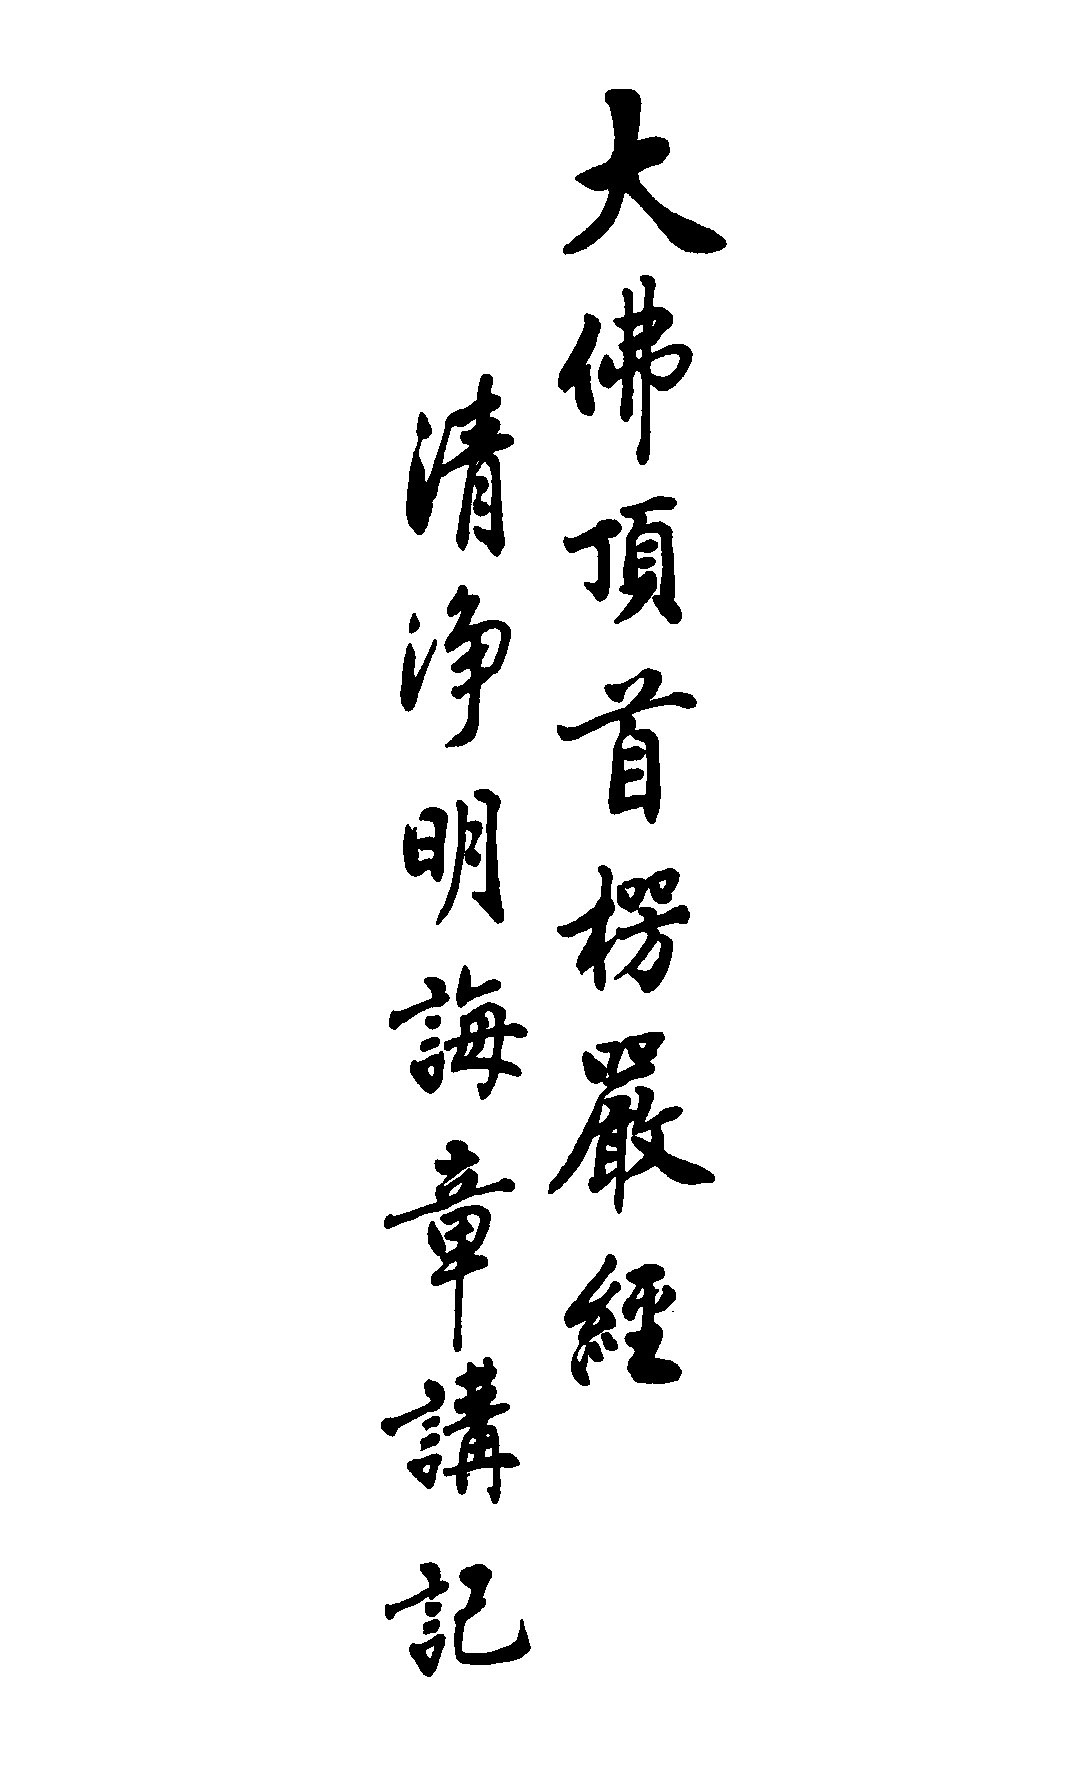 大佛頂首楞嚴經
清淨明誨章講記